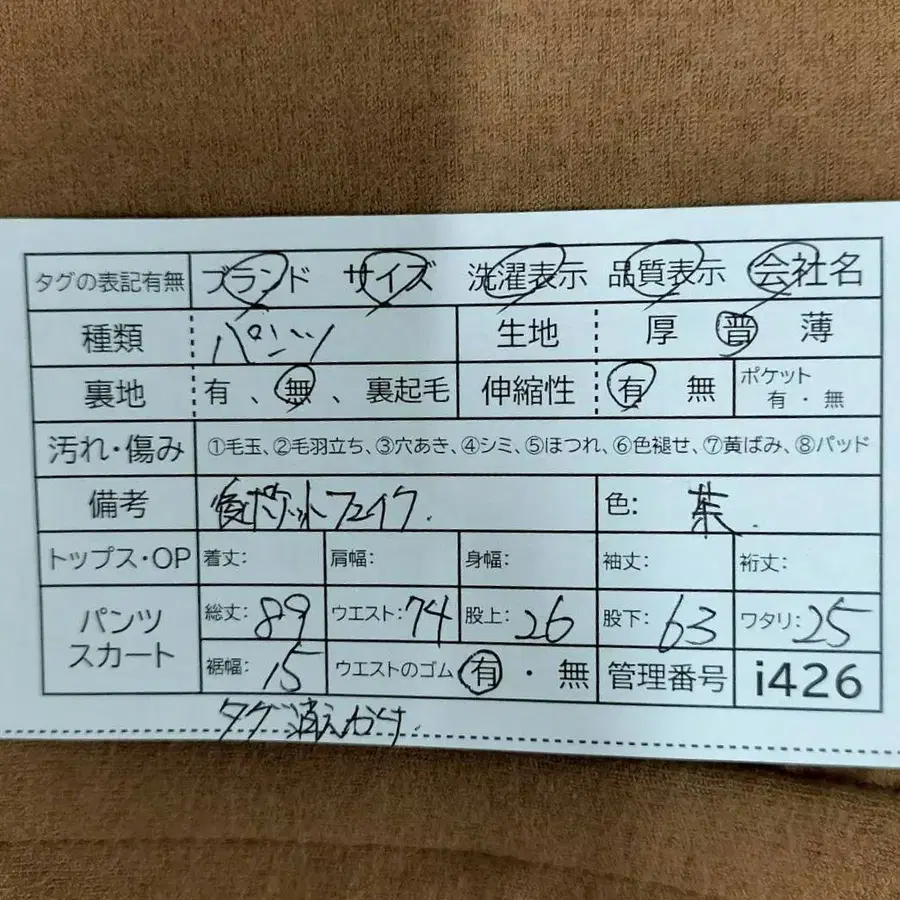 タグの表記有無 ブランド サイズ 洗濯表示 品質表示 会社名
種類 パンツ 生地 厚 普 薄
裏地 有 、無 、裏起毛 伸縮性 有 無 ポケット 有・無
汚れ・傷み ①毛玉、②毛羽立ち、③穴あき、④シミ、⑤ほつれ、⑥色褪せ、⑦黄ばみ、⑧パッド
備考 ポケットフェイク. 色: 茶.
トップス・OP 着丈: 肩幅: 身幅: 袖丈: 裄丈:
パンツ スカート 総丈: 89 ウエスト: 74 股上: 26 股下: 63 ワタリ: 25
裾幅: 15 ウエストのゴム 有 ・ 無 管理番号 i426
タグ消えかけ.